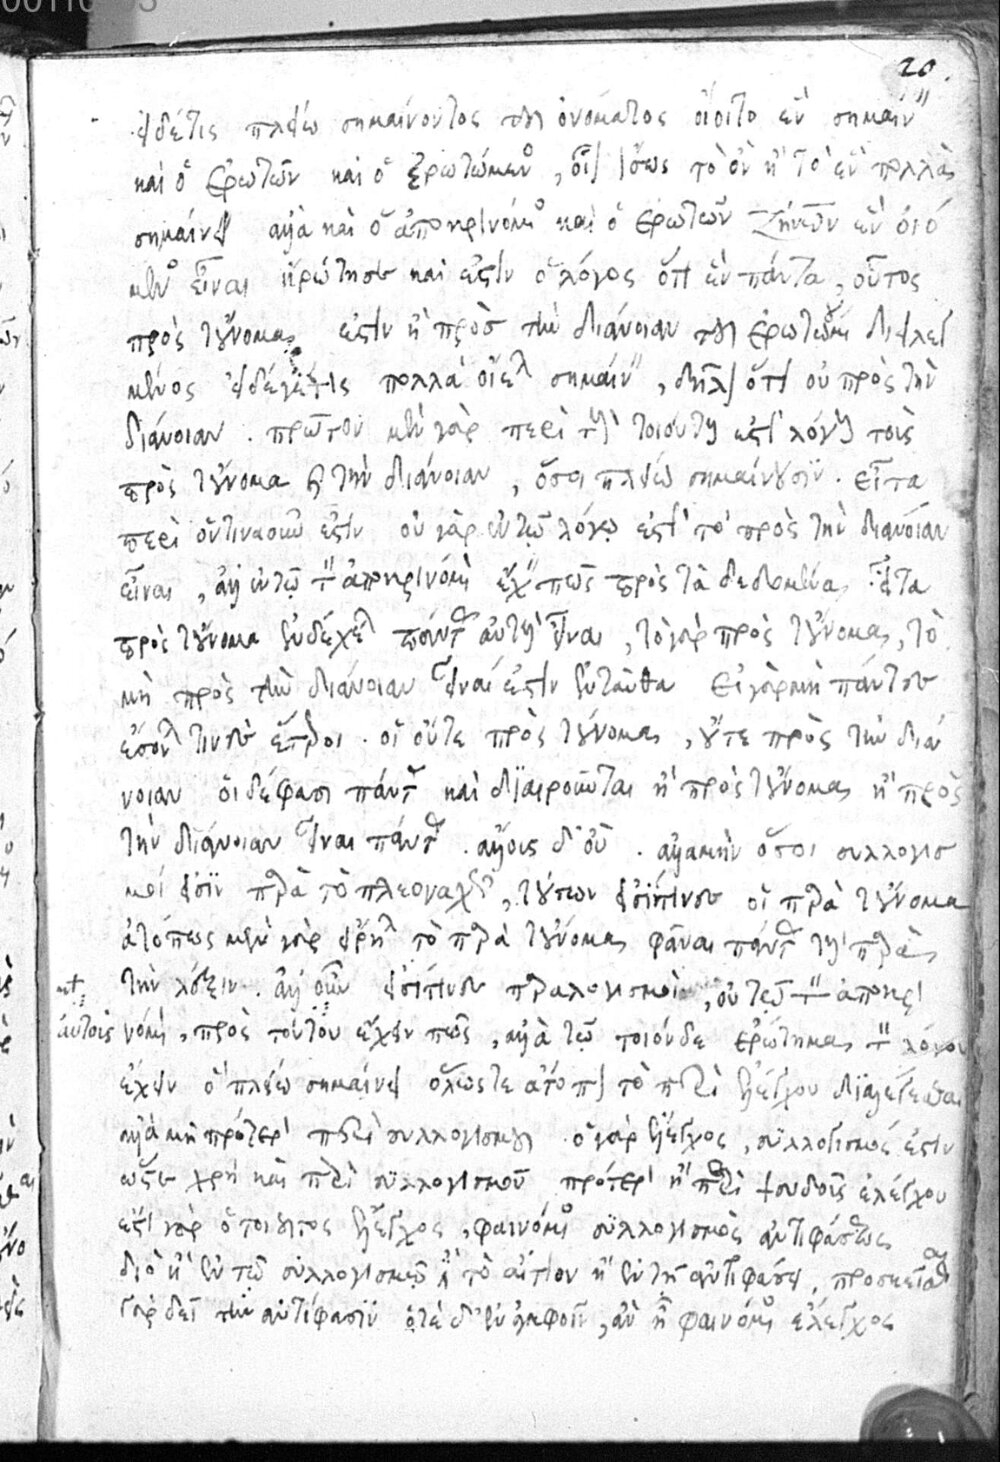 20.
εἰ δέ τις πλείω σημαίνοντος τοῦ ὀνόματος οἴοιτο ἓν σημαίν
καὶ ὁ ἐρωτῶν καὶ ὁ ἐρωτώμενος, οἷον ἴσως τὸ ὂν ἢ τὸ ἓν πολλὰ
σημαίνει ἀλλὰ καὶ ὁ ἀποκρινόμενος καὶ ὁ ἐρωτῶν Ζήνων ἓν οἰό
μενος εἶναι ἠρώτησε καὶ ἔστιν ὁ λόγος ὅτι ἓν πάντα, οὗτος
πρὸς τοὔνομα ἔστιν ἢ πρὸς τὴν διάνοιαν τοῦ ἐρωτωμένου διειλεγ
μένος εἰ δέ γέ τις πολλὰ οἴεται σημαίν, δῆλον ὅτι οὐ πρὸς τὴν
διάνοιαν. πρῶτον μὲν γὰρ περὶ τοὺς τοιούτους ἐστὶ λόγους τοῖς
πρὸς τοὔνομα καὶ τὴν διάνοιαν, ὅσοι πλείω σημαίνουσιν. εἶτα
περὶ ὁντιναοῦν ἐστιν οὐ γὰρ ἐν τῷ λόγῳ ἐστὶ τὸ πρὸς τὴν διάνοιαν
εἶναι, ἀλλ' ἐν τῷ τὸν ἀποκρινόμενον ἔχειν πως πρὸς τὰ δεδομένα. εἶτα
πρὸς τοὔνομα ἐνδέχεται πάντας αὐτοὺς εἶναι, τὸ γὰρ πρὸς τοὔνομα, τὸ
μὴ πρὸς τὴν διάνοιαν εἶναί ἐστιν ἐνταῦθα εἰ γὰρ μὴ πάντες
ἔσονταί τινες ἕτεροι. οἳ οὔτε πρὸς τοὔνομα, οὔτε πρὸς τὴν διά
νοιαν οἱ δέ φασι πάντας καὶ διαιροῦνται ἢ πρὸς τοὔνομα ἢ πρὸς
τὴν διάνοιαν εἶναι πάντας. ἄλλους δ' οὔ. ἀλλὰ μὴν ὅσοι συλλογισ
μοί εἰσιν παρὰ τὸ πλεοναχῶς, τούτων εἰσί τινες οἱ παρὰ τοὔνομα
ἀτόπως μὲν γὰρ εἴρηται τὸ παρὰ τοὔνομα φάναι πάντας τοὺς παρὰ
τὴν λέξιν. ἀλλ' οὖν εἰσί τινες παραλογισμοὶ, οὐ τῷ τὸν ἀποκρι
αὐτοῖς νόμενον, πρὸς τούτου ἔχειν πως, ἀλλὰ τῷ τοιόνδε ἐρώτημα τὸν λόγον
ἔχειν ὃ πλείω σημαίνει ὅλως τε ἄτοπον τὸ περὶ ἐλέγχου διαλέγεσθαι
ἀλλὰ μὴ πρότερον περὶ συλλογισμοῦ ὁ γὰρ ἔλεγχος, συλλογισμός ἐστιν
ὥστε χρὴ καὶ περὶ συλλογισμοῦ πρότερον ἢ περὶ ψευδοῦς ἐλέγχου
ἔστι γὰρ ὁ τοιοῦτος ἔλεγχος, φαινόμενος συλλογισμὸς ἀντιφάσεως
διὸ ἢ ἐν τῷ συλλογισμῷ ἔσται τὸ αἴτιον ἢ ἐν τῇ ἀντιφάσει, προσκεῖσθαι
γὰρ δεῖ τὴν ἀντίφασιν ὁτὲ δ' ἐν ἀμφοῖν, ἂν ᾖ φαινόμενος ἔλεγχος